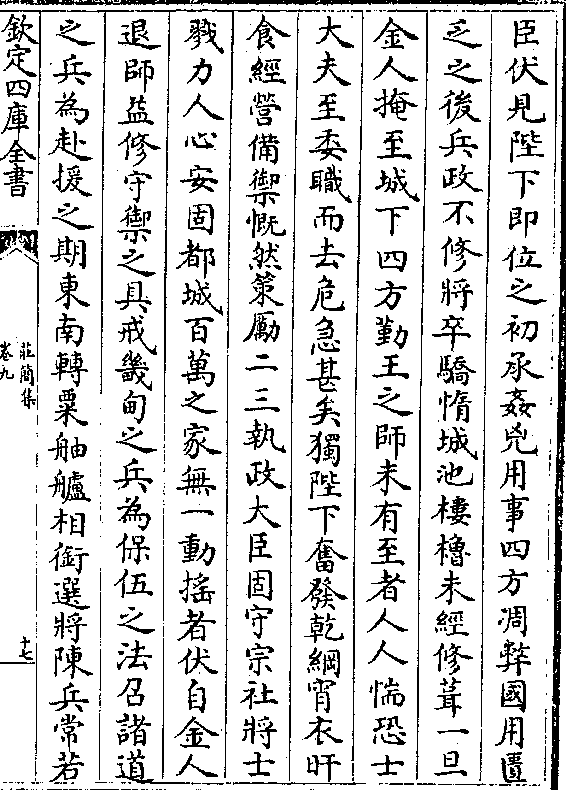 臣伏見陛下即位之初承姦兇用事四方凋弊國用匱
乏之後兵政不修將卒驕惰城池樓櫓未經修葺一旦
金人掩至城下四方勤王之師未有至者人人惴恐士
大夫至委職而去危急甚矣獨陛下奮發乾綱宵衣旰
食經營備禦慨然策勵二三執政大臣固守宗社將士
戮力人心安固都城百萬之家無一動搖者伏自金人
退師益修守禦之具戒畿甸之兵為保伍之法召諸道
之兵為赴援之期東南轉粟舳艫相銜選將陳兵常若
欽定四庫全書
莊簡集
卷九
十七